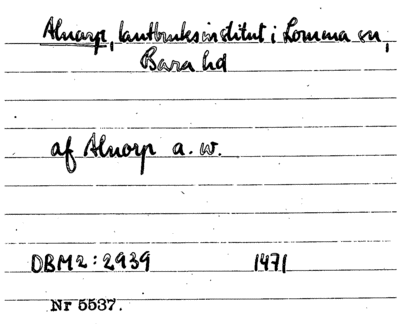 Alnarp, lantbruksinstitut i Lomma sn,
Bara hd
af Alnorp a. w.
DBM2: 2939 1471
Nr 5537.